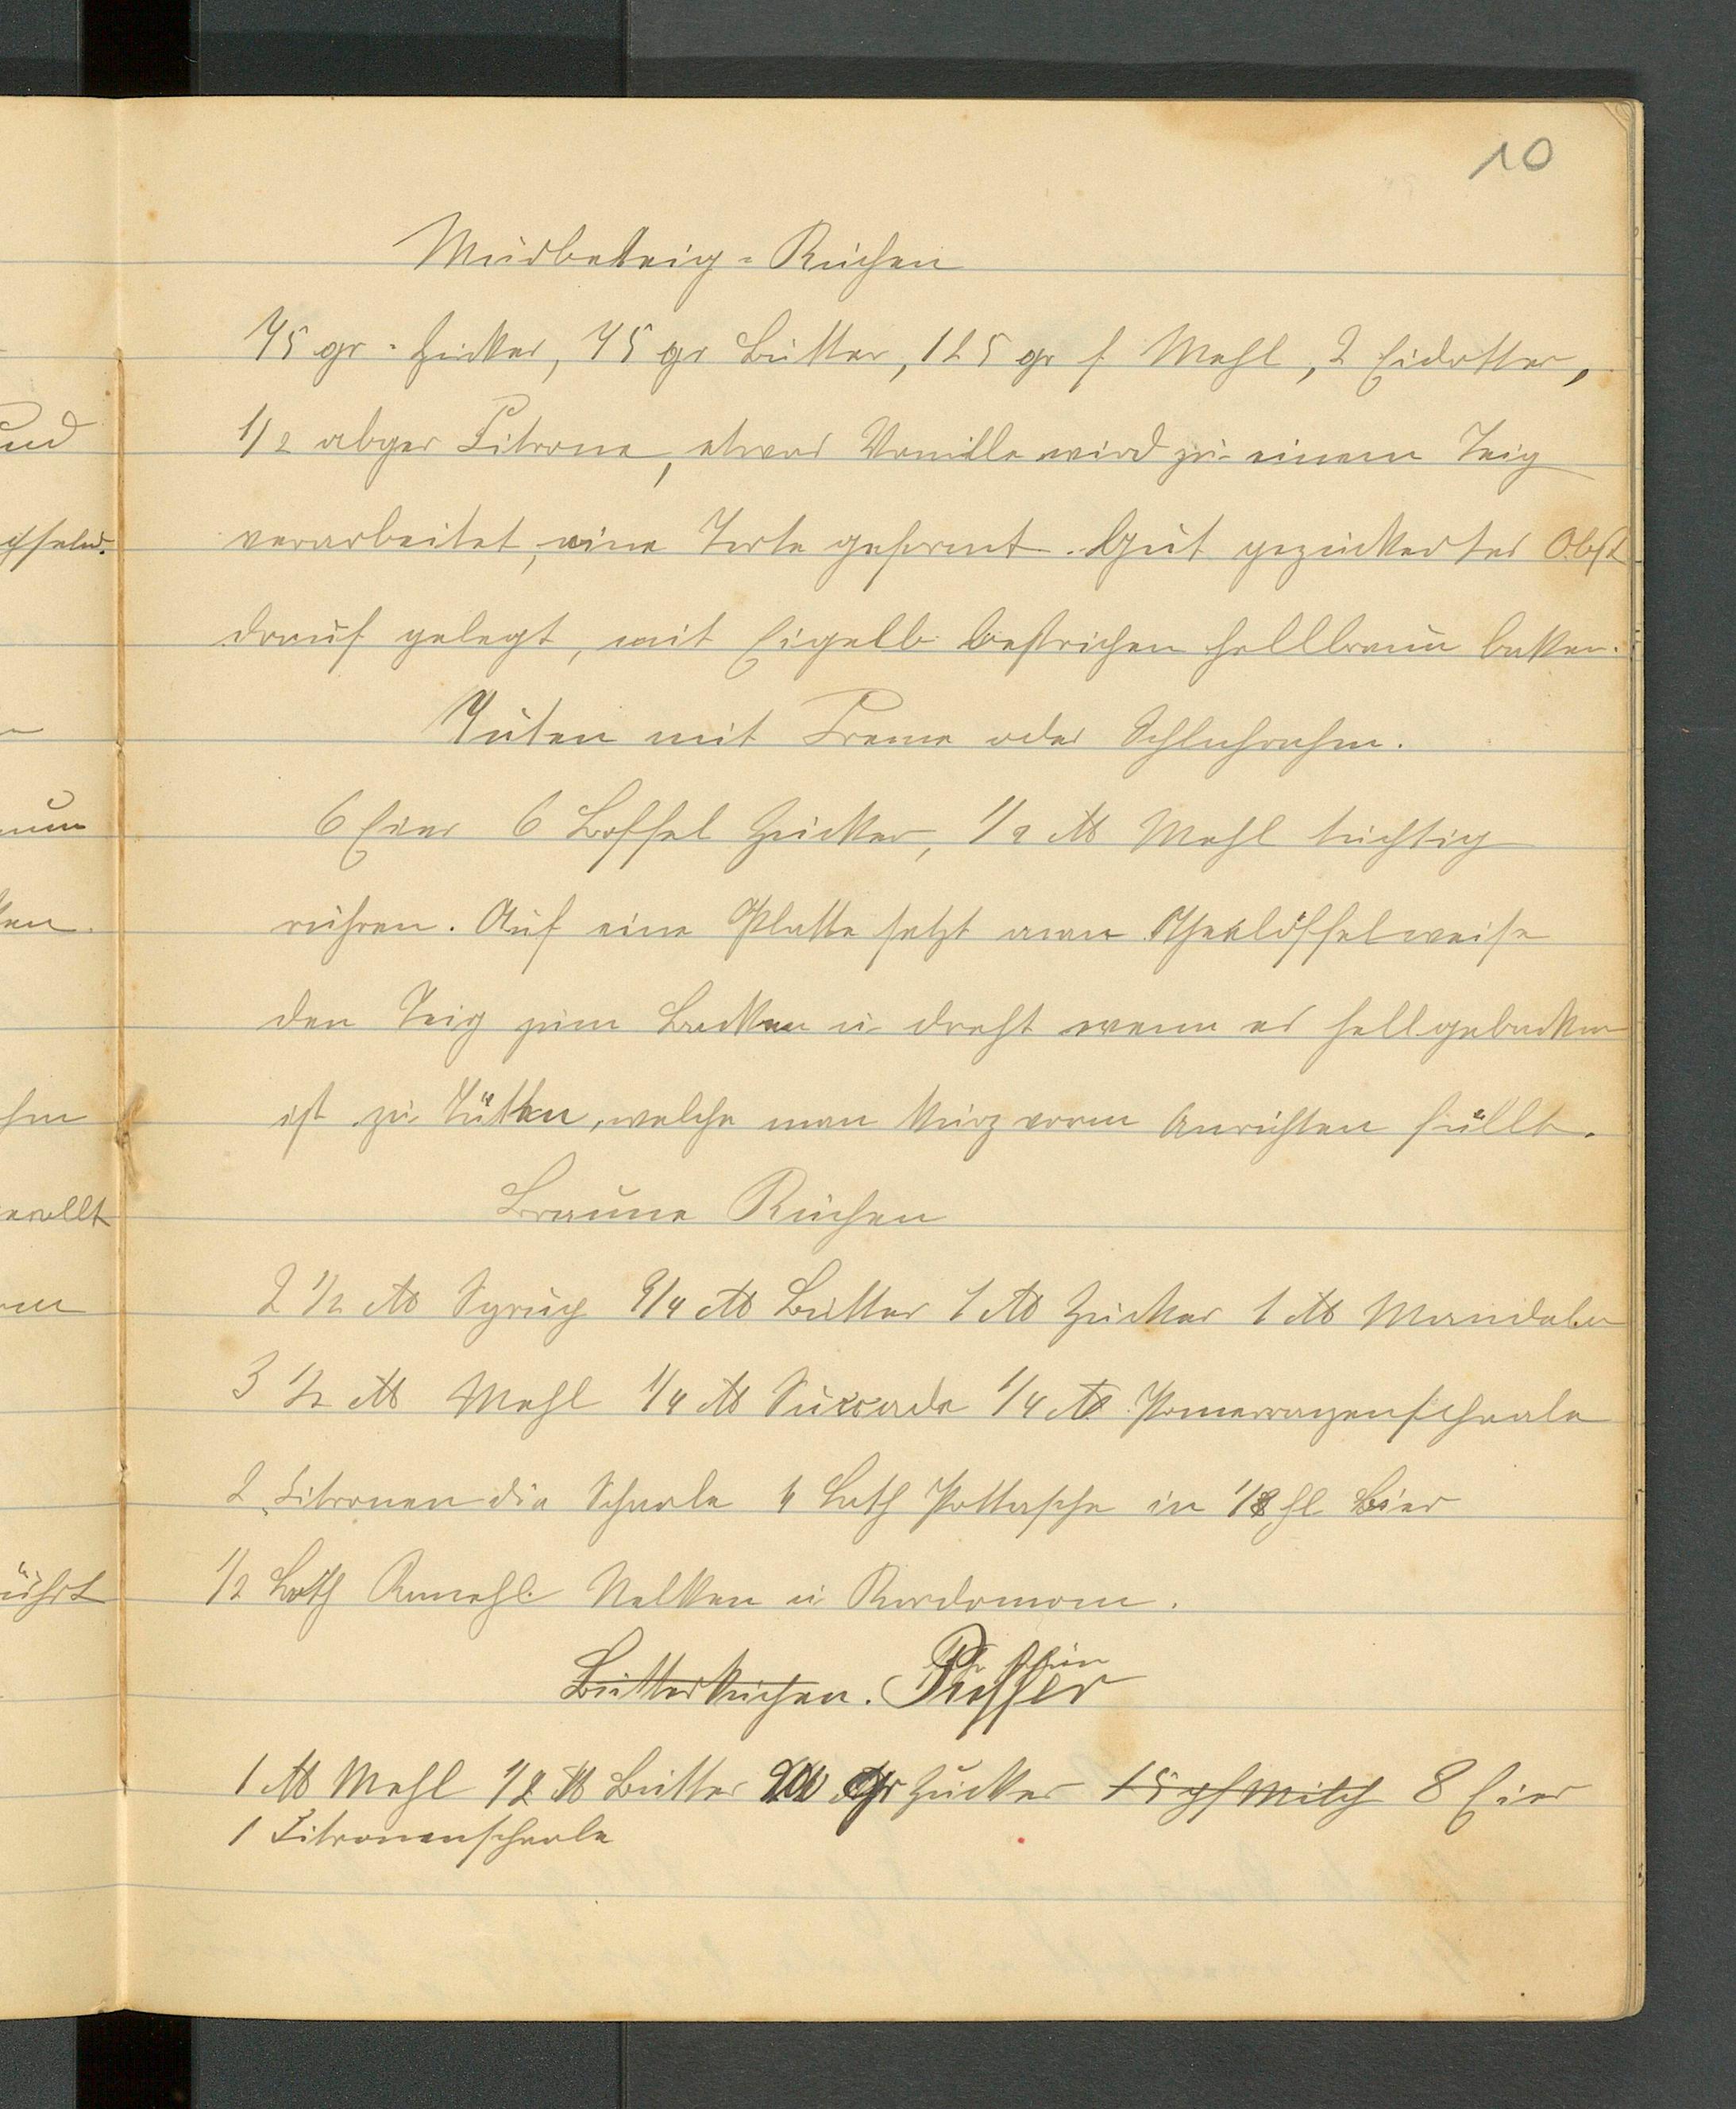 10
Mürbeteig-Kuchen
75 gr. Zucker, 75 gr Butter, 125 gr f Mehl, 2 Eidotter,
1/2 abger Citrone, etwas Vanille wird zu einem Teig
verarbeitet, eine Torte geformt. Gut gezuckertes Obst
drauf gelegt, mit Eigelb bestrichen hellbraun backen.
Tüten mit Creme oder Schlachrahm.
6 Eier 6 Löffel Zucker, 1/2 ℔ Mehl tüchtig
rühren. Auf eine Platte setzt man Theelöffelweise
den Teig zum Backen u dreht wenn es hellgebacken
ist zu Tütten, welche man kurz vorm Anrichten füllt.
Braune Kuchen
2 1/2 ℔ Syrup 3/4 ℔ Butter 1 ℔ Zucker 1 ℔ Mandeln
3 1/2 ℔ Mehl 1/4 ℔ Succade 1/4 ℔ Pomeranzenschaale
2 Citronen die Schaale 4 Loth Pottasche in 1/8 fl Bier
1/2 Loth Nelken u Kardomom.
Butterkuchen. Puffer
1 ℔ Mehl 1/2 ℔ Butter gr Zucker 15 gr Milch 8 Eier
1 Citronenschaale
und
ken.
hm
erollt
ührt